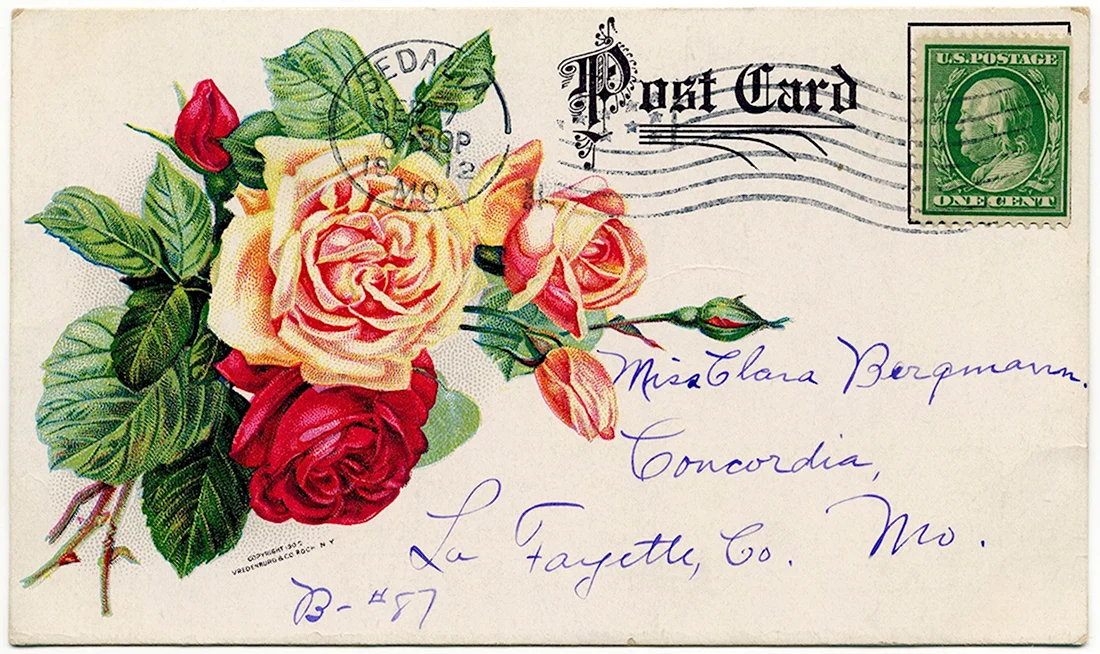 Post Card
U.S. POSTAGE
ONE CENT
SEDAL
SEP 7
30P
19 12
MO.
Miss Clara Bergmann.
Concordia,
La Fayette, Co. Mo.
B-#87
COPYRIGHT 1905
VREDENBURG & CO. ROCH. N.Y.